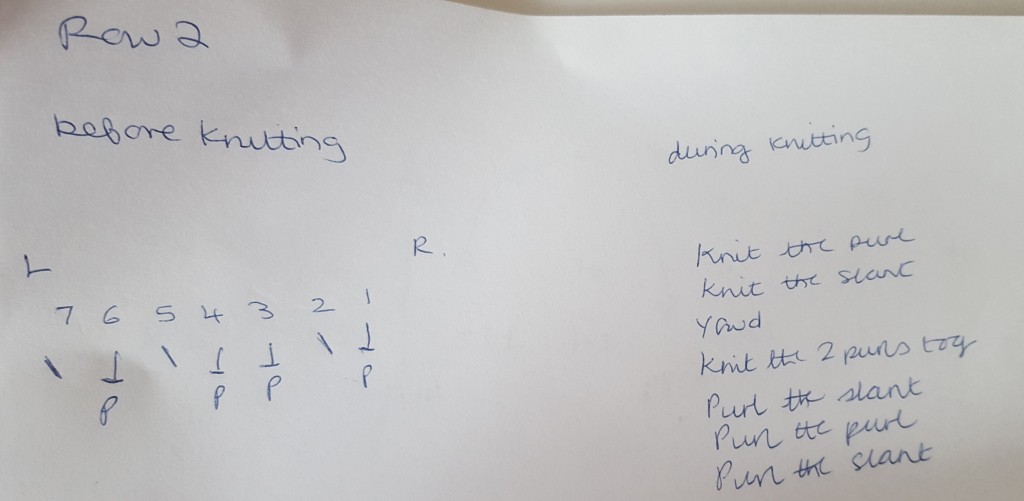 Row 2
before knitting
during knitting
L
R.
7 6 5 4 3 2 1
\ ⊥ \ ⊥ ⊥ \ ⊥
P P P P
Knit the purl
Knit the slant
Yfwd
Knit the 2 purls tog
Purl the slant
Purl the purl
Purl the slant